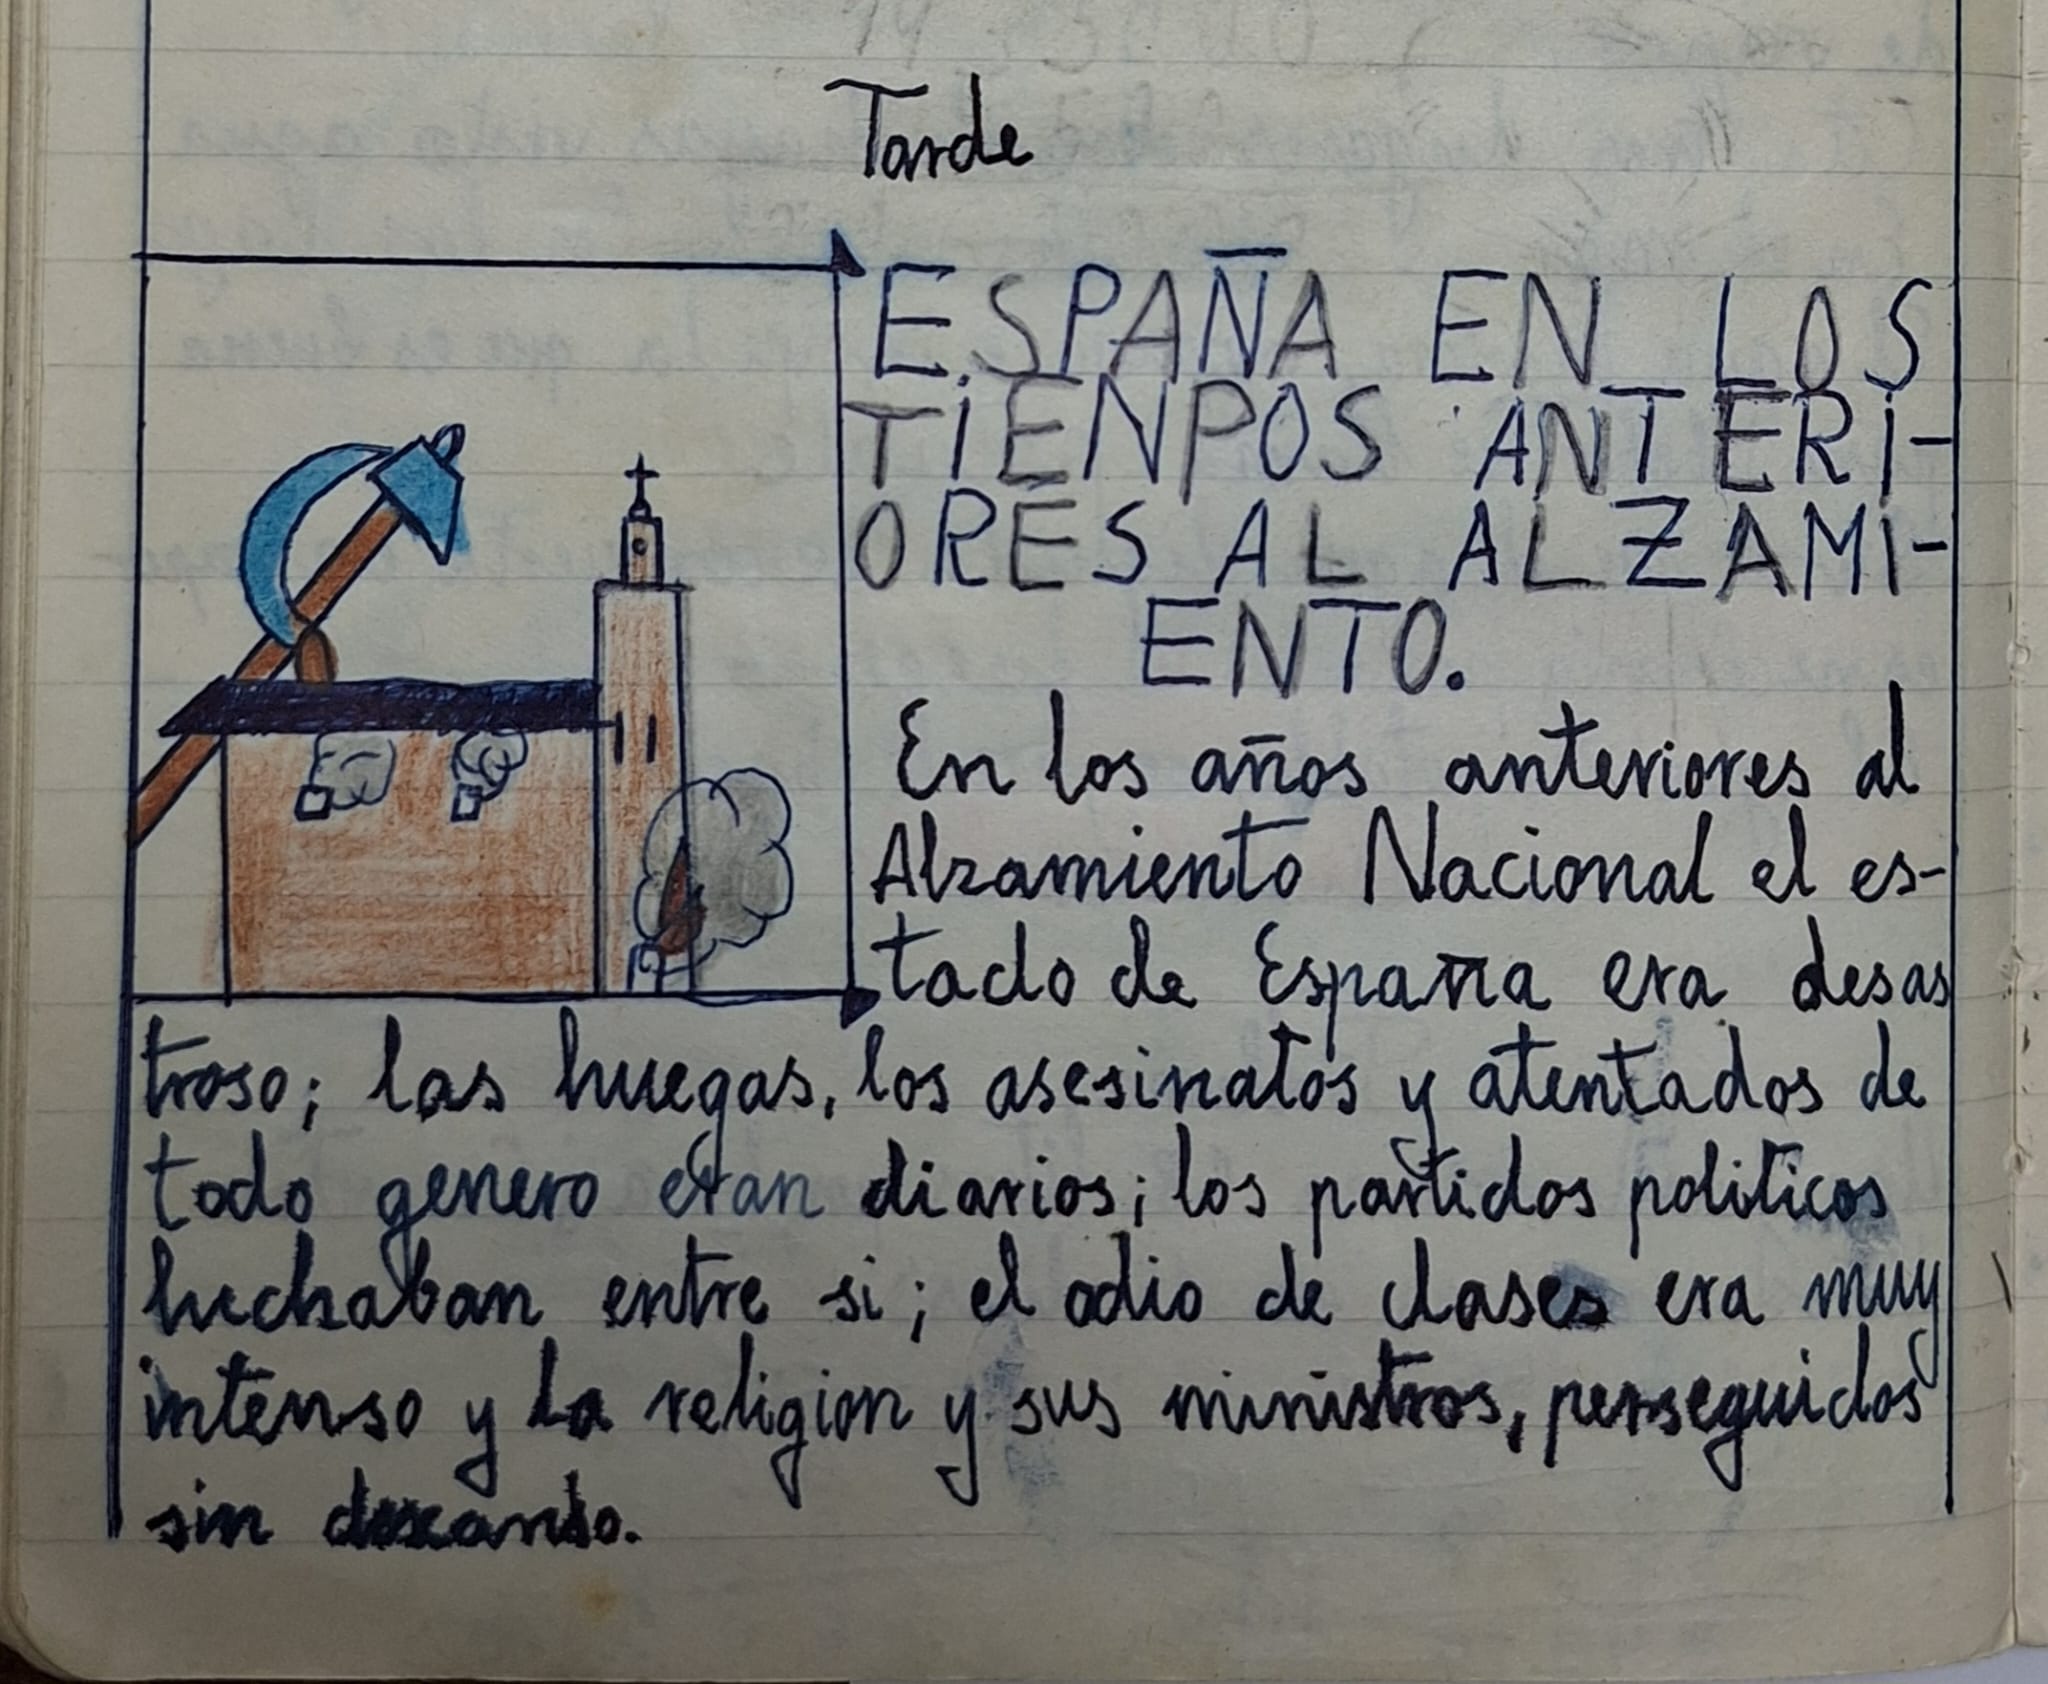 Tarde
ESPAÑA EN LOS
TIENPOS ANTERI-
ORES AL ALZAMI-
ENTO.
En los años anteriores al
Alzamiento Nacional el es-
tado de España era desas
troso; las huegas, los asesinatos y atentados de
todo genero eran diarios; los partidos politicos
luchaban entre si; el odio de clases era muy
intenso y la religion y sus ministros, perseguidos
sin descanso.